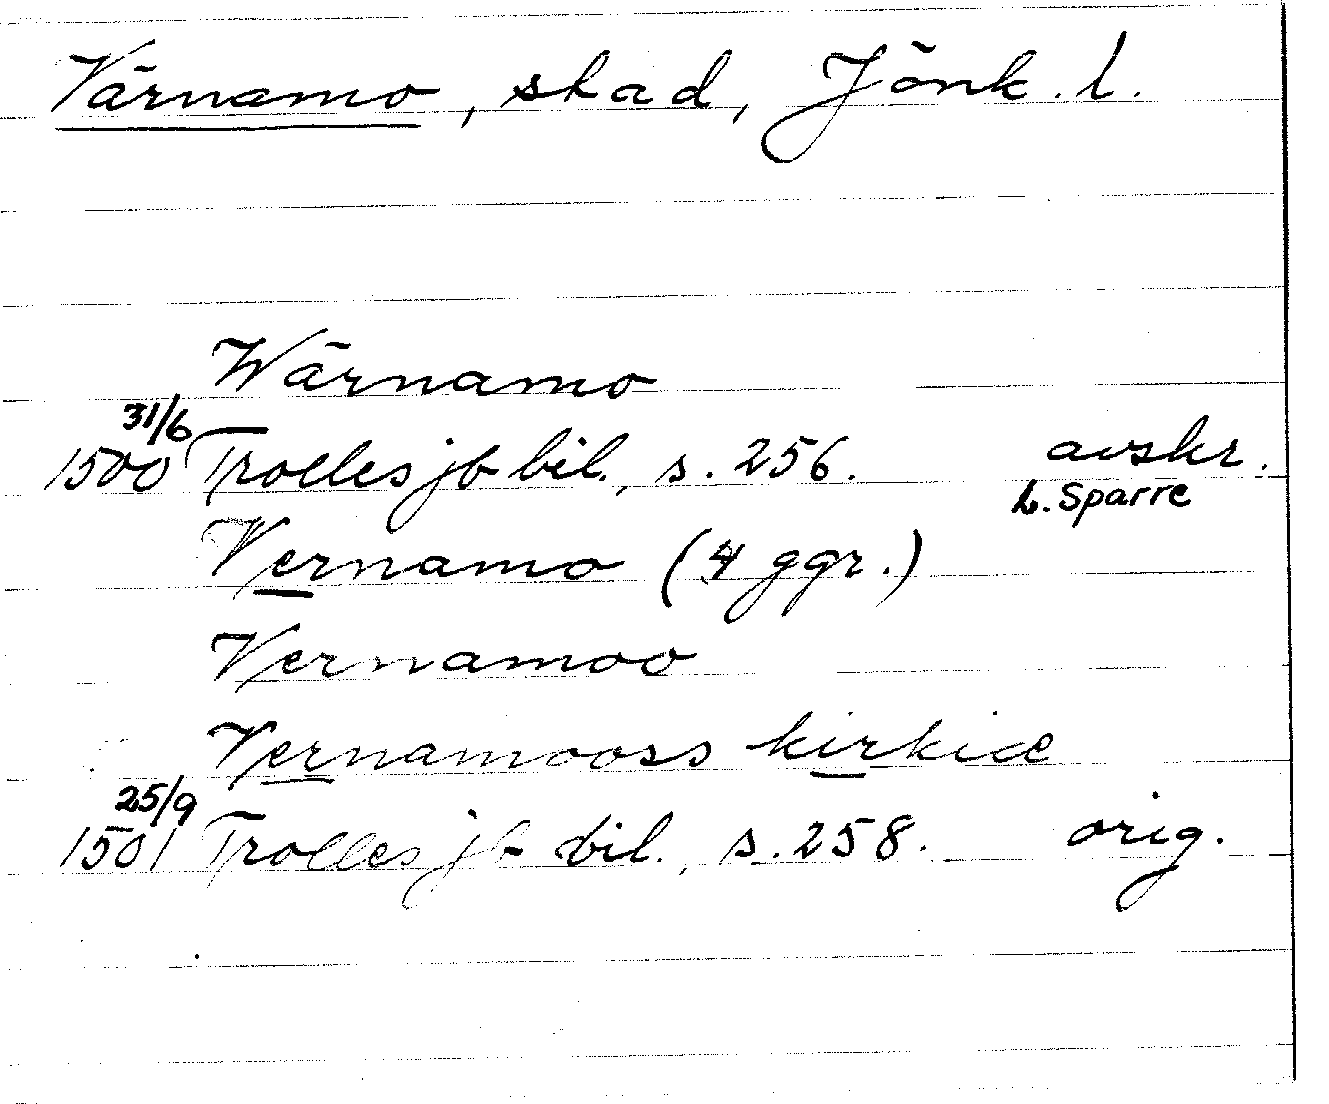 Värnamo, stad, Jönk. l.
Wärnamo
31/6
1500 Trolles jb bil., s. 256. avskr.
L. Sparre
Vernamo (4 ggr.)
Vernamoo
Vernamooss kirkiæ
25/9
1501 Trolles jb bil., s. 258. orig.